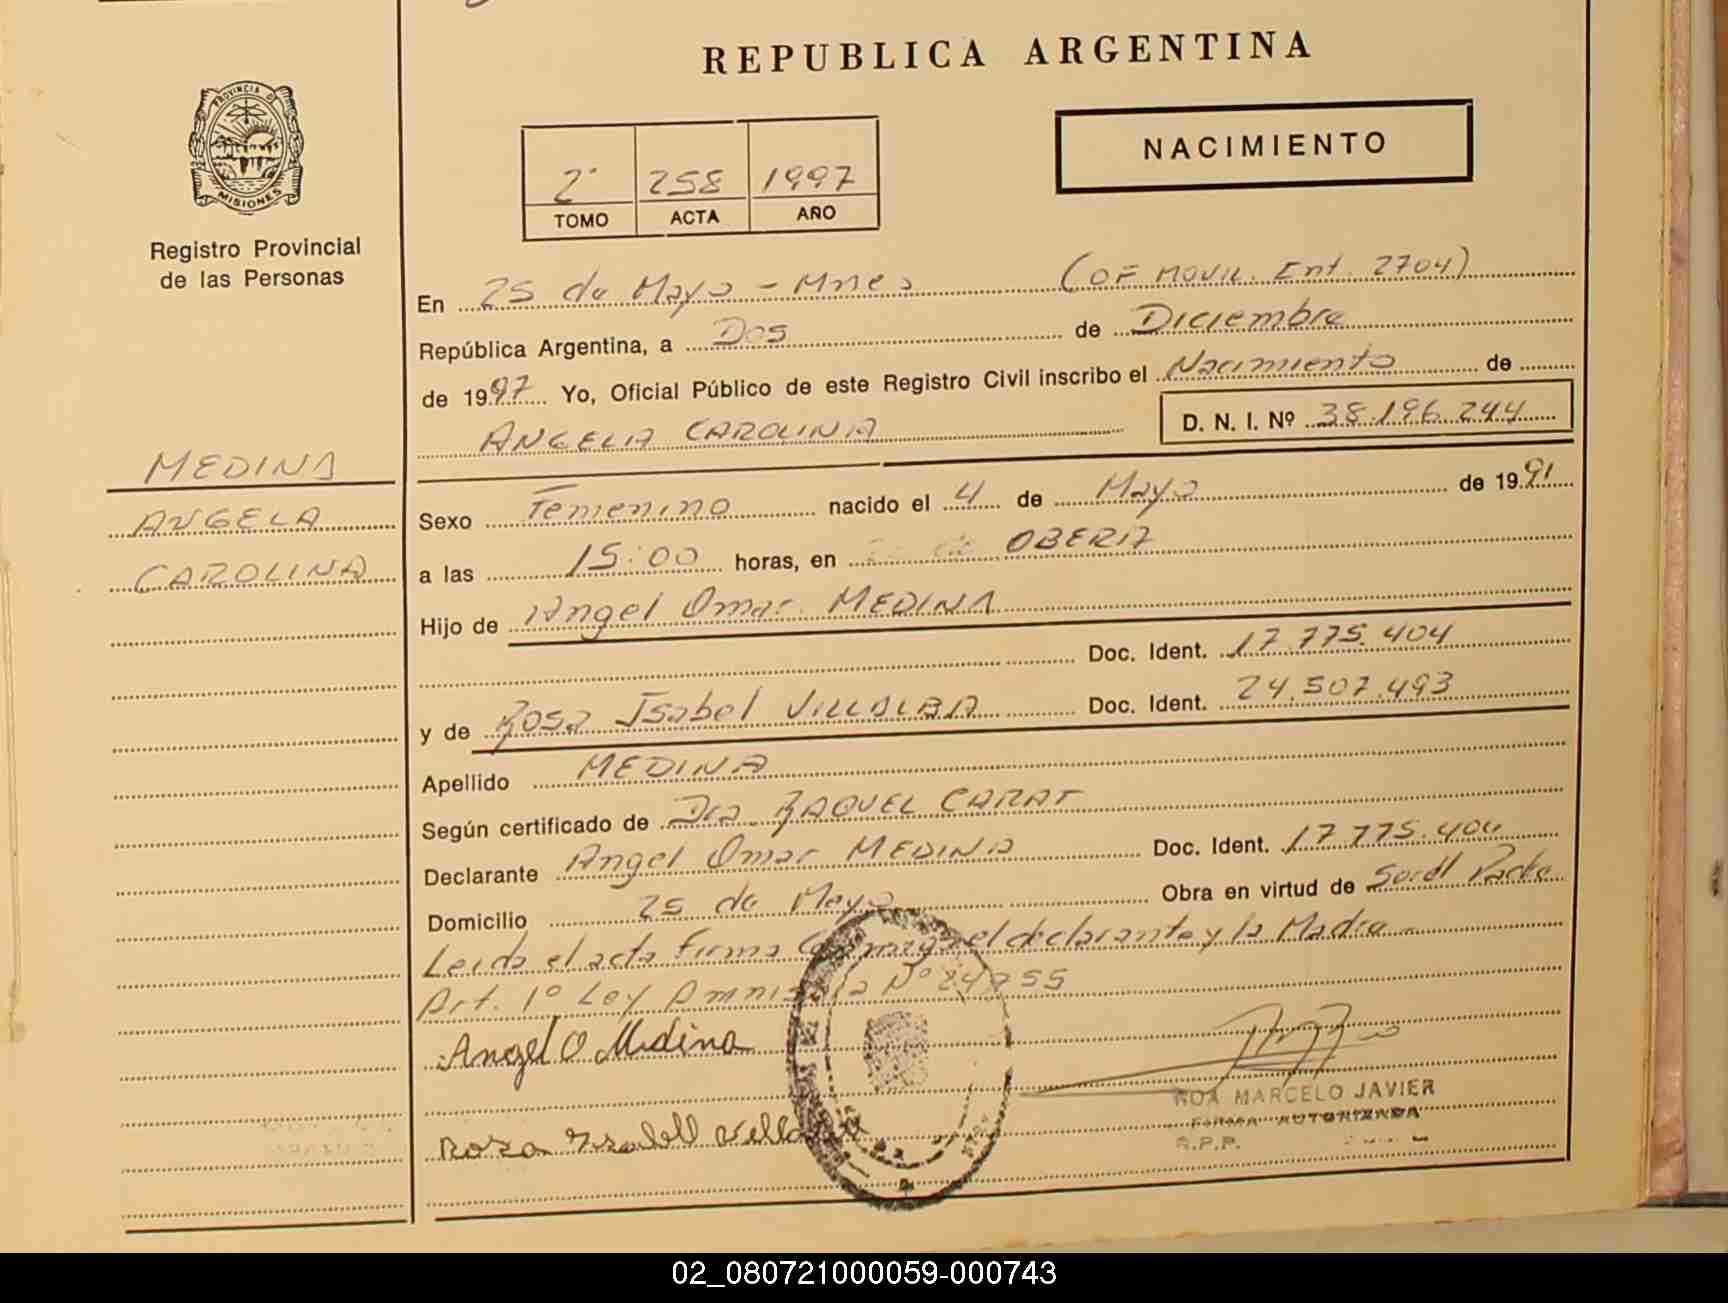 REPUBLICA ARGENTINA
NACIMIENTO
PROVINCIA DE
MISIONES
Registro Provincial
de las Personas
2º 258 1997
TOMO ACTA AÑO
En 25 de Mayo - Mnes (OF MOVIL. Int. 2704)
República Argentina, a Dos de Diciembre
de 1997 Yo, Oficial Público de este Registro Civil inscribo el Nacimiento de
ANGELA CAROLINA D. N. I. Nº 38.196.244
MEDINA
ANGELA
CAROLINA
Sexo Femenino nacido el 4 de Mayo de 1991
a las 15:00 horas, en OBERA
Hijo de Angel Omar MEDINA
Doc. Ident. 17.775.404
y de Rosa Isabel VILLALBA Doc. Ident. 24.507.493
Apellido MEDINA
Según certificado de Dra. RAQUEL
Declarante Angel Omar MEDINA Doc. Ident. 17.775.404
Domicilio 25 de Mayo Obra en virtud de Padre
Leida el acta Firma Conmigo el declarante y la Madre
Art. 1º Ley Amnistia Nº
Angel O Medina
Rosa
MARCELO JAVIER
FIRMA AUTORIZADA
R.P.P.
02_080721000059-000743